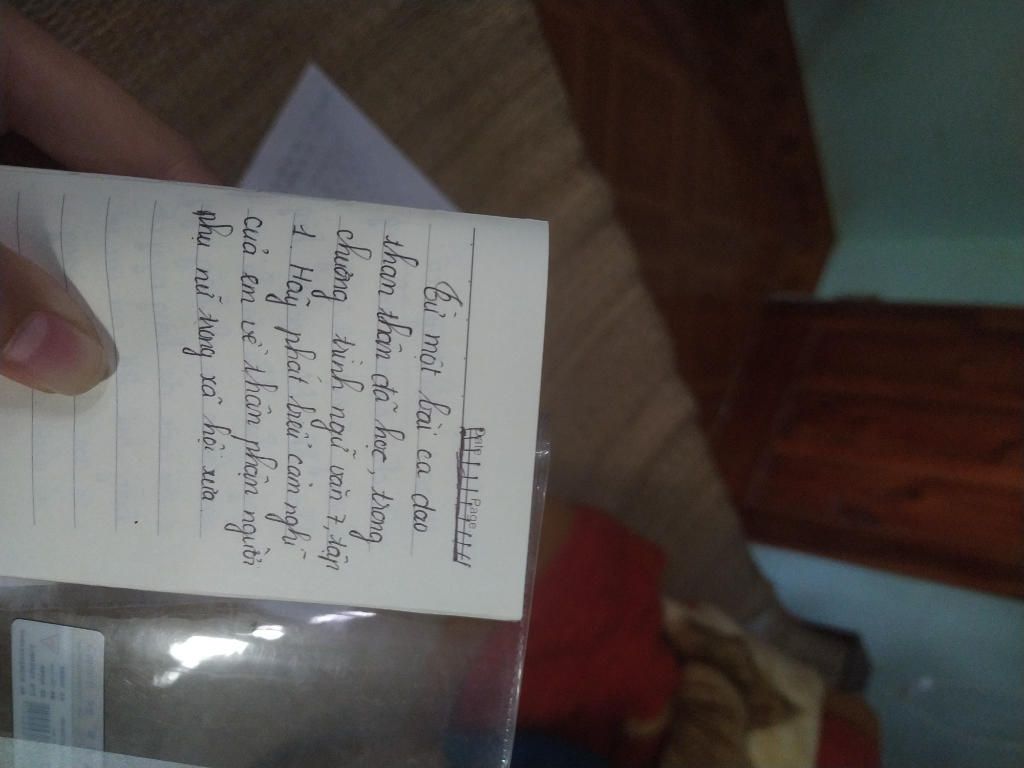 Page
Từ một bài ca dao
than thân đã học, trong
chương trình ngữ văn 7, tập
1. Hãy phát biểu cảm nghĩ
của em về thân phận người
phụ nữ trong xã hội xưa.